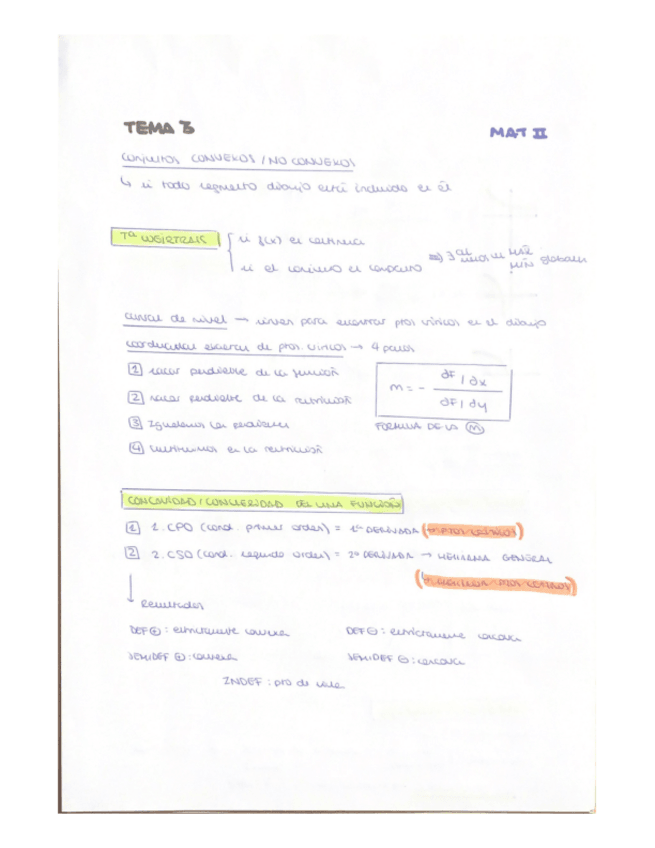 TEMA 3
MAT II
CONJUNTOS CONVEXOS / NO CONVEXOS
↳ si todo segmento dibujo está incluido en él
Tª WEIRTRAIS
si f(x) es continua
si el conjunto es compacto
⇒ ∃ al menos un MÁX MÍN globales
curvas de nivel → sirven para encontrar ptos. críticos en el dibujo
coordenadas exactas de ptos. críticos → 4 pasos
1 sacar pendiente de la función
2 sacar pendiente de la restricción
3 Igualamos las pendientes
4 sustituimos en la restricción
m = - ∂F / ∂x
∂F / ∂y
FÓRMULA DE LA m
CONCAVIDAD / CONVEXIDAD DE UNA FUNCIÓN
1 1. CPO (cond. primer orden) = 1ª DERIVADA (→ PTOS CRÍTICOS)
2 2. CSO (cond. segundo orden) = 2ª DERIVADA → HESSIANA GENERAL
(↳ HESSIANA PTOS CRÍTICOS)
↓ Resultados
DEF ⊕ : estrictamente convexa
DEF ⊖ : estrictamente cóncava
SEMIDEF ⊕ : convexa
SEMIDEF ⊖ : cóncava
INDEF : pto de silla